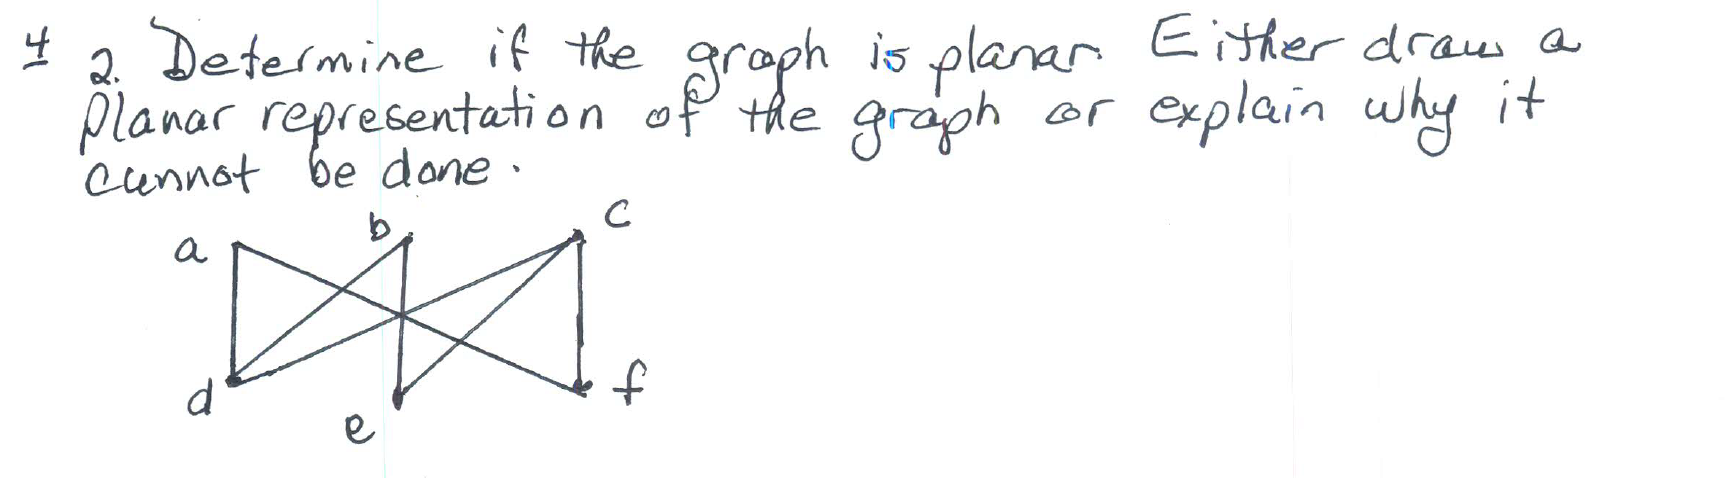 4 2. Determine if the graph is planar. Either draw a
planar representation of the graph or explain why it
cannot be done.
a b c
d e f